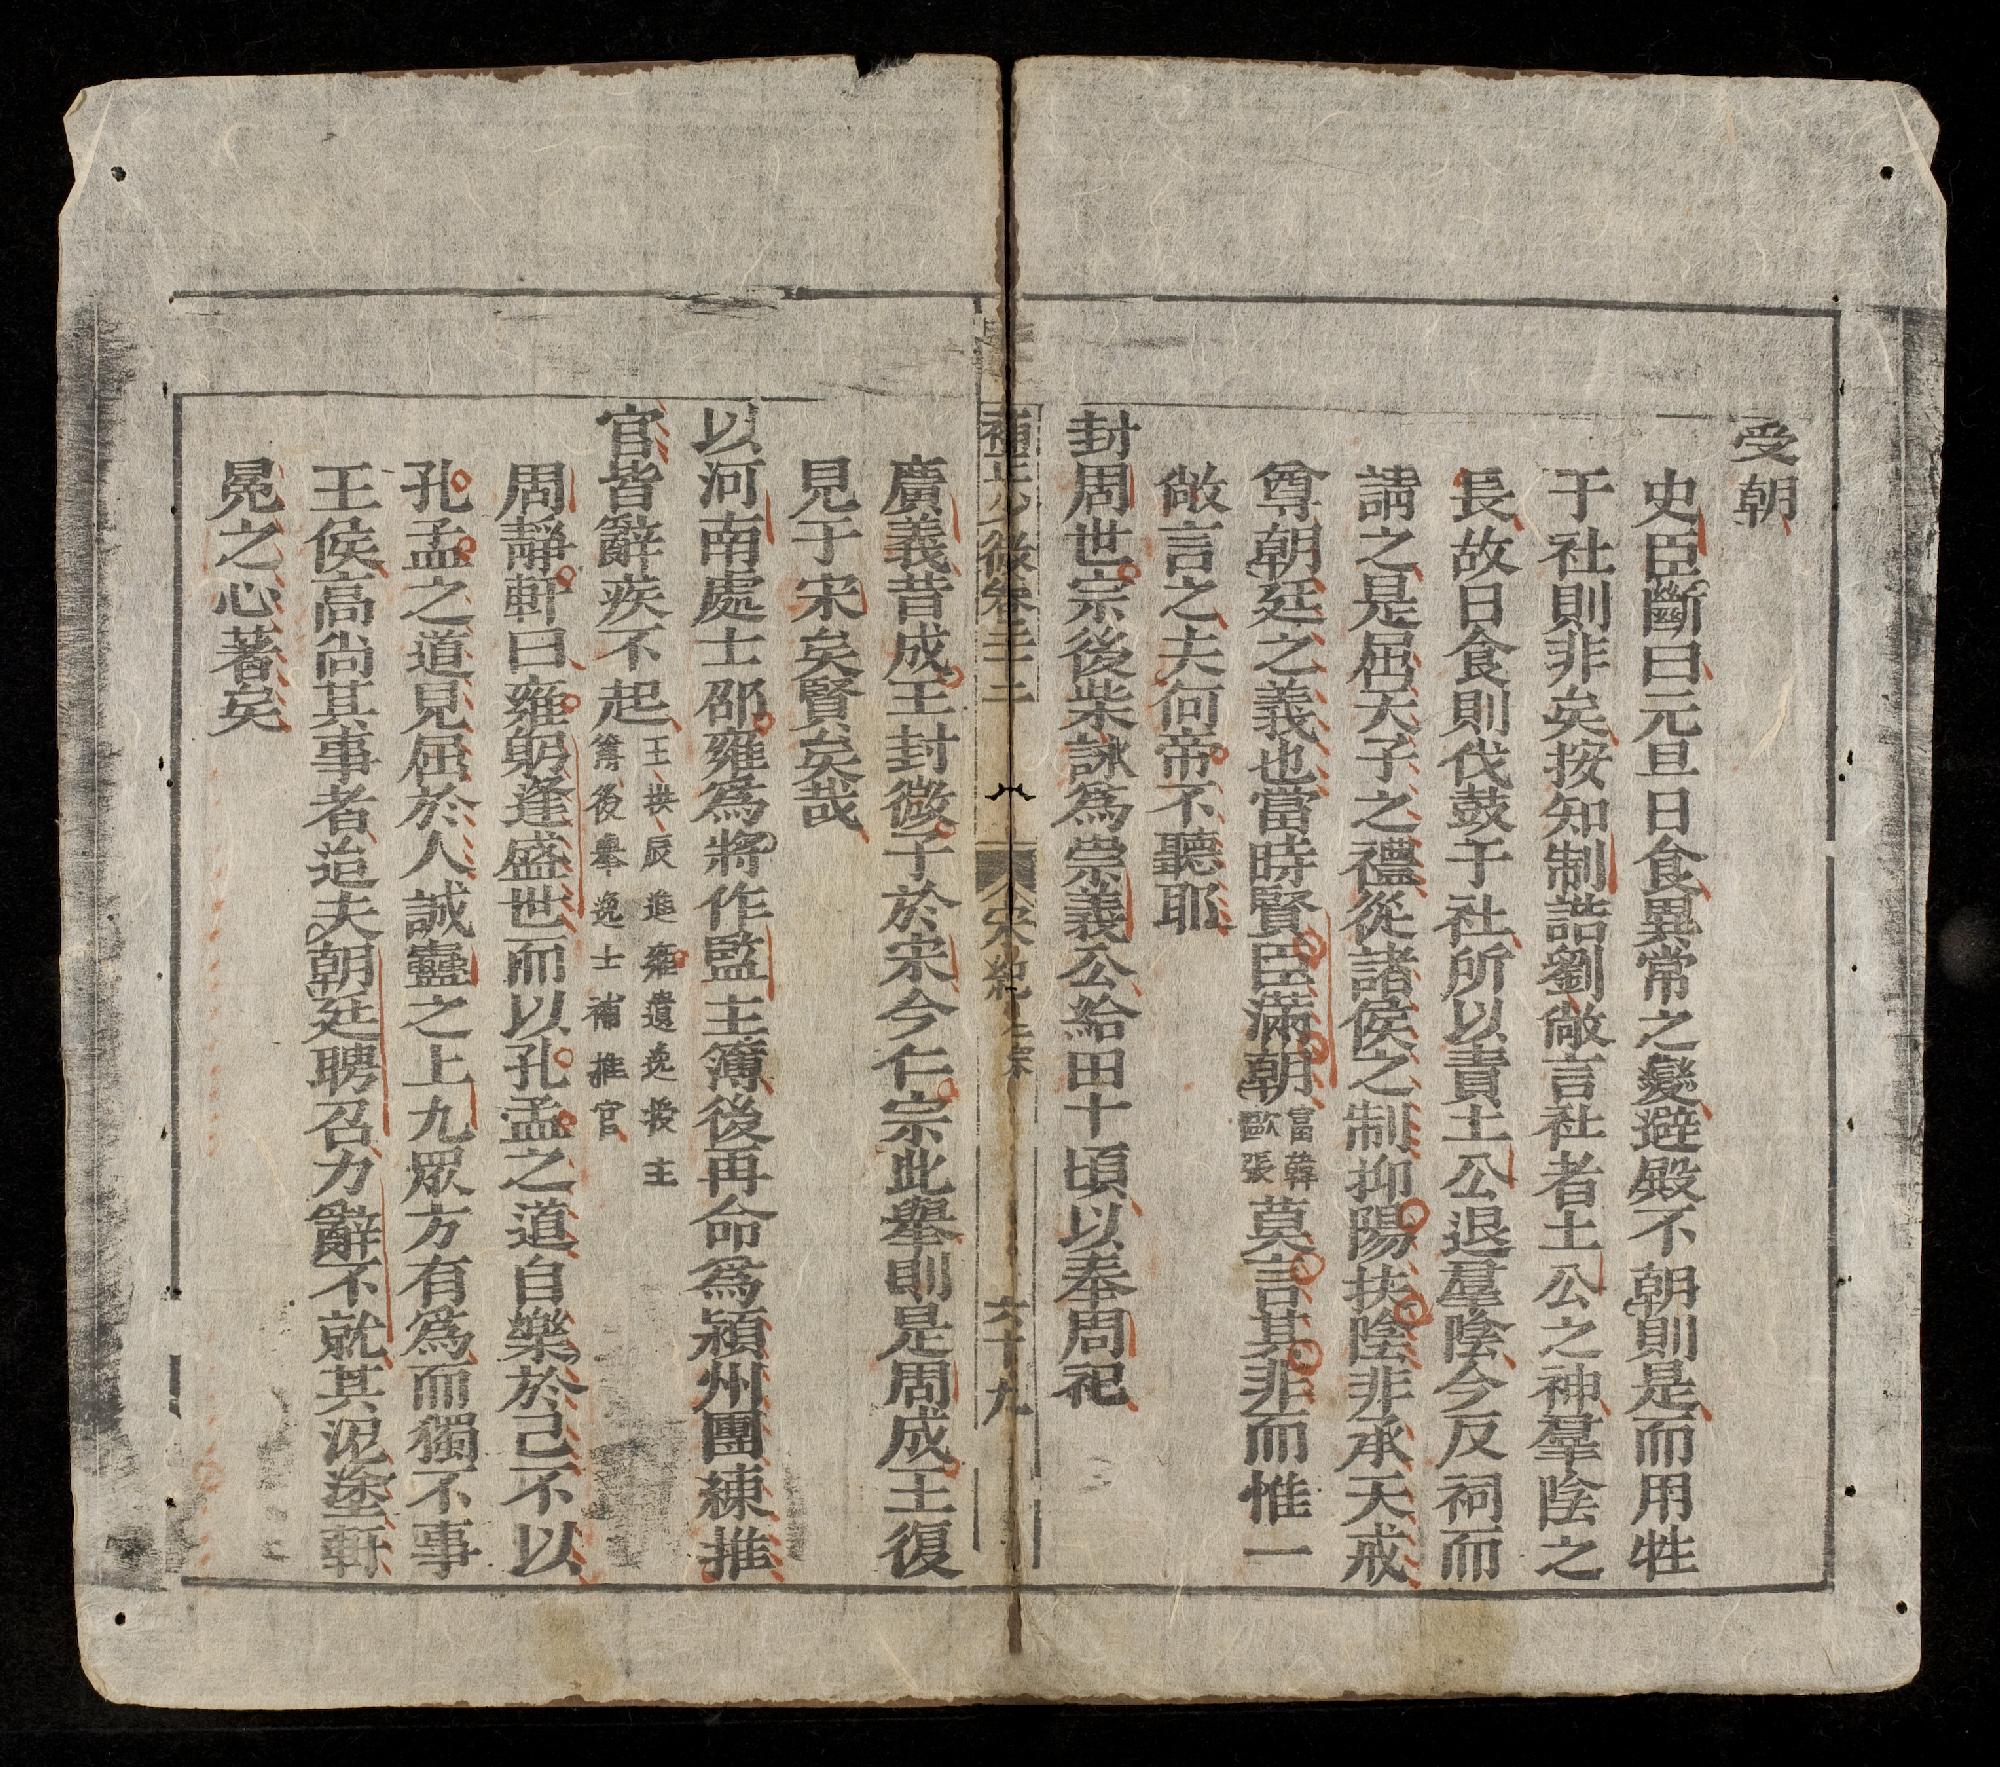 受朝
史臣斷曰元旦日食異常之變避殿不朝則是而用牲
于社則非矣按知制誥劉敞言社者土公之神羣陰之
長故日食則伐鼓于社所以責土公退羣陰今反祠而
請之是屈天子之禮從諸侯之制抑陽扶陰非承天戒
尊朝廷之義也當時賢臣滿朝富韓歐張莫言其非而惟一
敞言之夫何帝不聽耶
封周世宗後柴詠爲崇義公給田十頃以奉周祀
宋紀 仁宗 六十九
廣義昔成王封微子於宋今仁宗此舉則是周成王復
見于宋矣賢矣哉
以河南處士邵雍爲將作監主簿後再命爲潁州團練推
官皆辭疾不起王拱辰進雍遺逸授主簿後舉逸士補推官
周靜軒曰雍躬逢盛世而以孔孟之道自樂於己不以
孔孟之道見屈於人誠蠱之上九眾方有爲而獨不事
王侯高尚其事者迨夫朝廷聘召力辭不就其泥塗軒
冕之心著矣